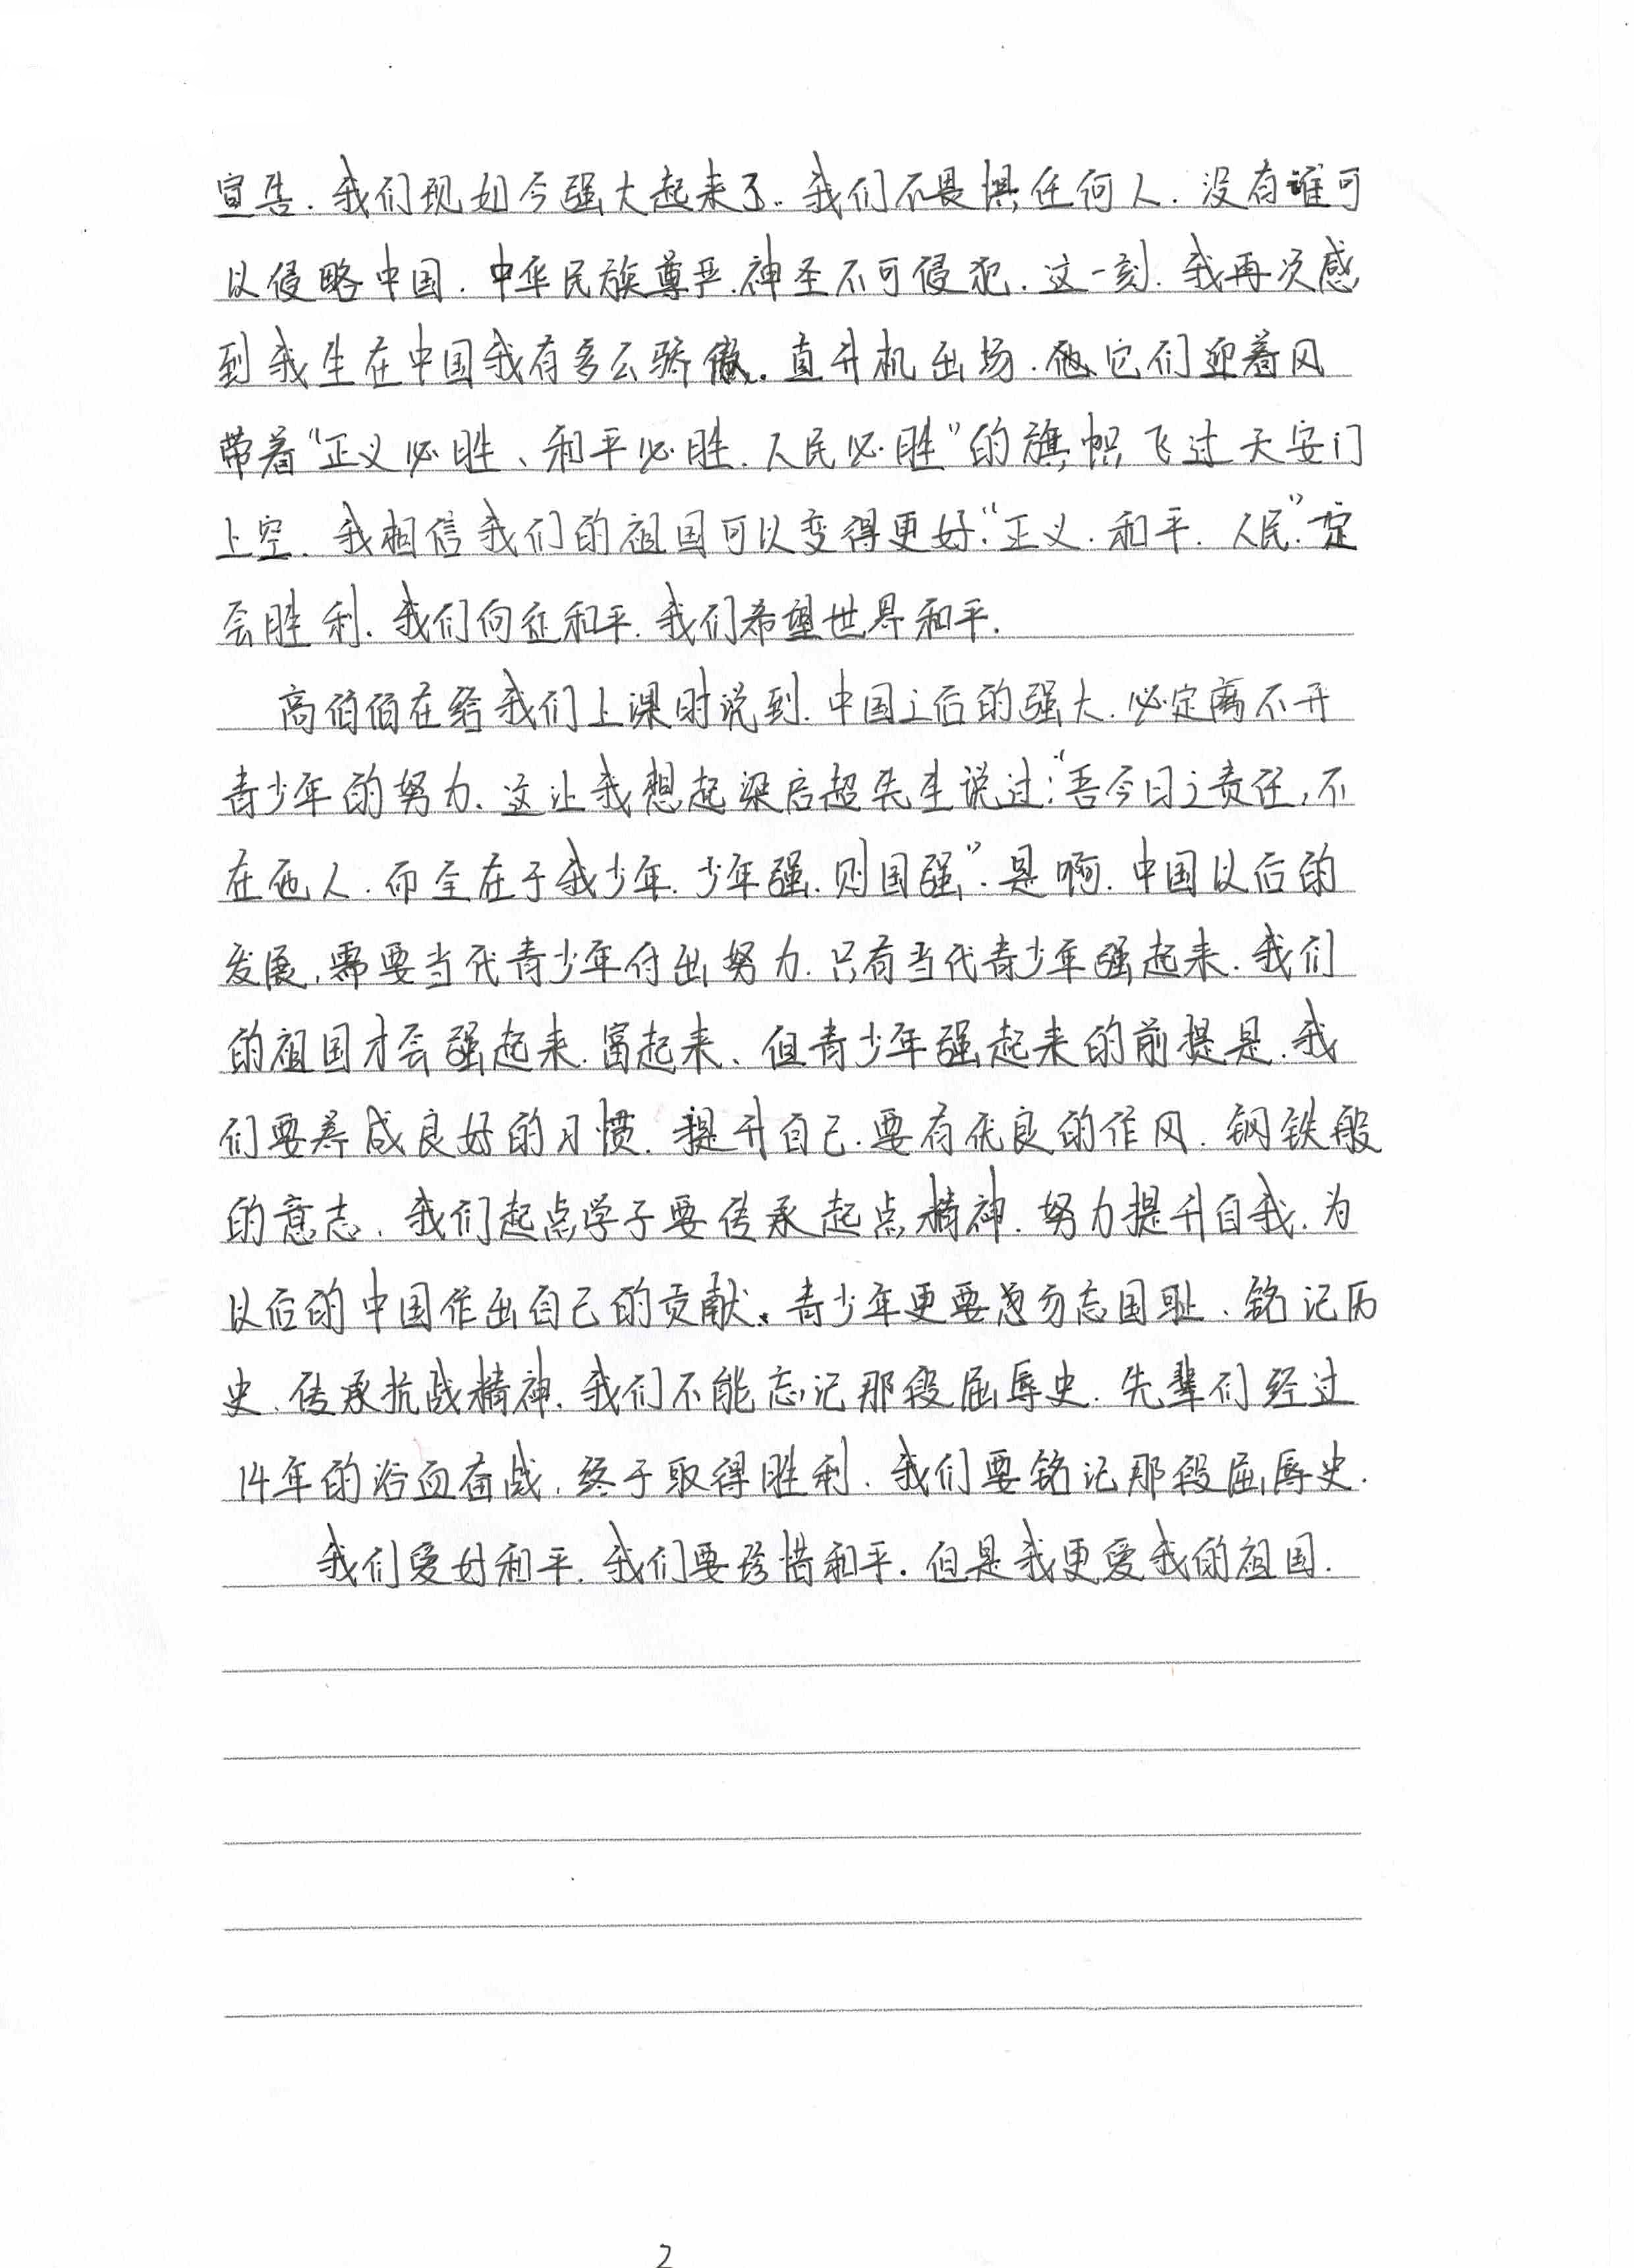 宣告.我们现如今强大起来了.我们不畏惧任何人.没有谁可
以侵略中国.中华民族尊严.神圣不可侵犯.这一刻.我再次感
到我生在中国我有多么骄傲.直升机出场.他它们迎着风
带着“正义必胜、和平必胜.人民必胜”的旗帜飞过天安门
上空.我相信我们的祖国可以变得更好.“正义.和平.人民”定
会胜利.我们向征和平.我们希望世界和平.
高伯伯在给我们上课时说到.中国之后的强大.必定离不开
青少年的努力.这让我想起梁启超先生说过:“吾今日之责任,不
在他人.而全在于我少年.少年强.则国强”.是啊.中国以后的
发展,需要当代青少年付出努力.只有当代青少年强起来.我们
的祖国才会强起来.富起来、但青少年强起来的前提是.我
们要养成良好的习惯.提升自己.要有优良的作风.钢铁般
的意志.我们起点学子要传承起点精神.努力提升自我.为
以后的中国作出自己的贡献.青少年更要勿忘国耻、铭记历
史、传承抗战精神.我们不能忘记那段屈辱史.先辈们经过
14年的浴血奋战.终于取得胜利.我们要铭记那段屈辱史.
我们爱好和平.我们要珍惜和平.但是我更爱我的祖国.
2